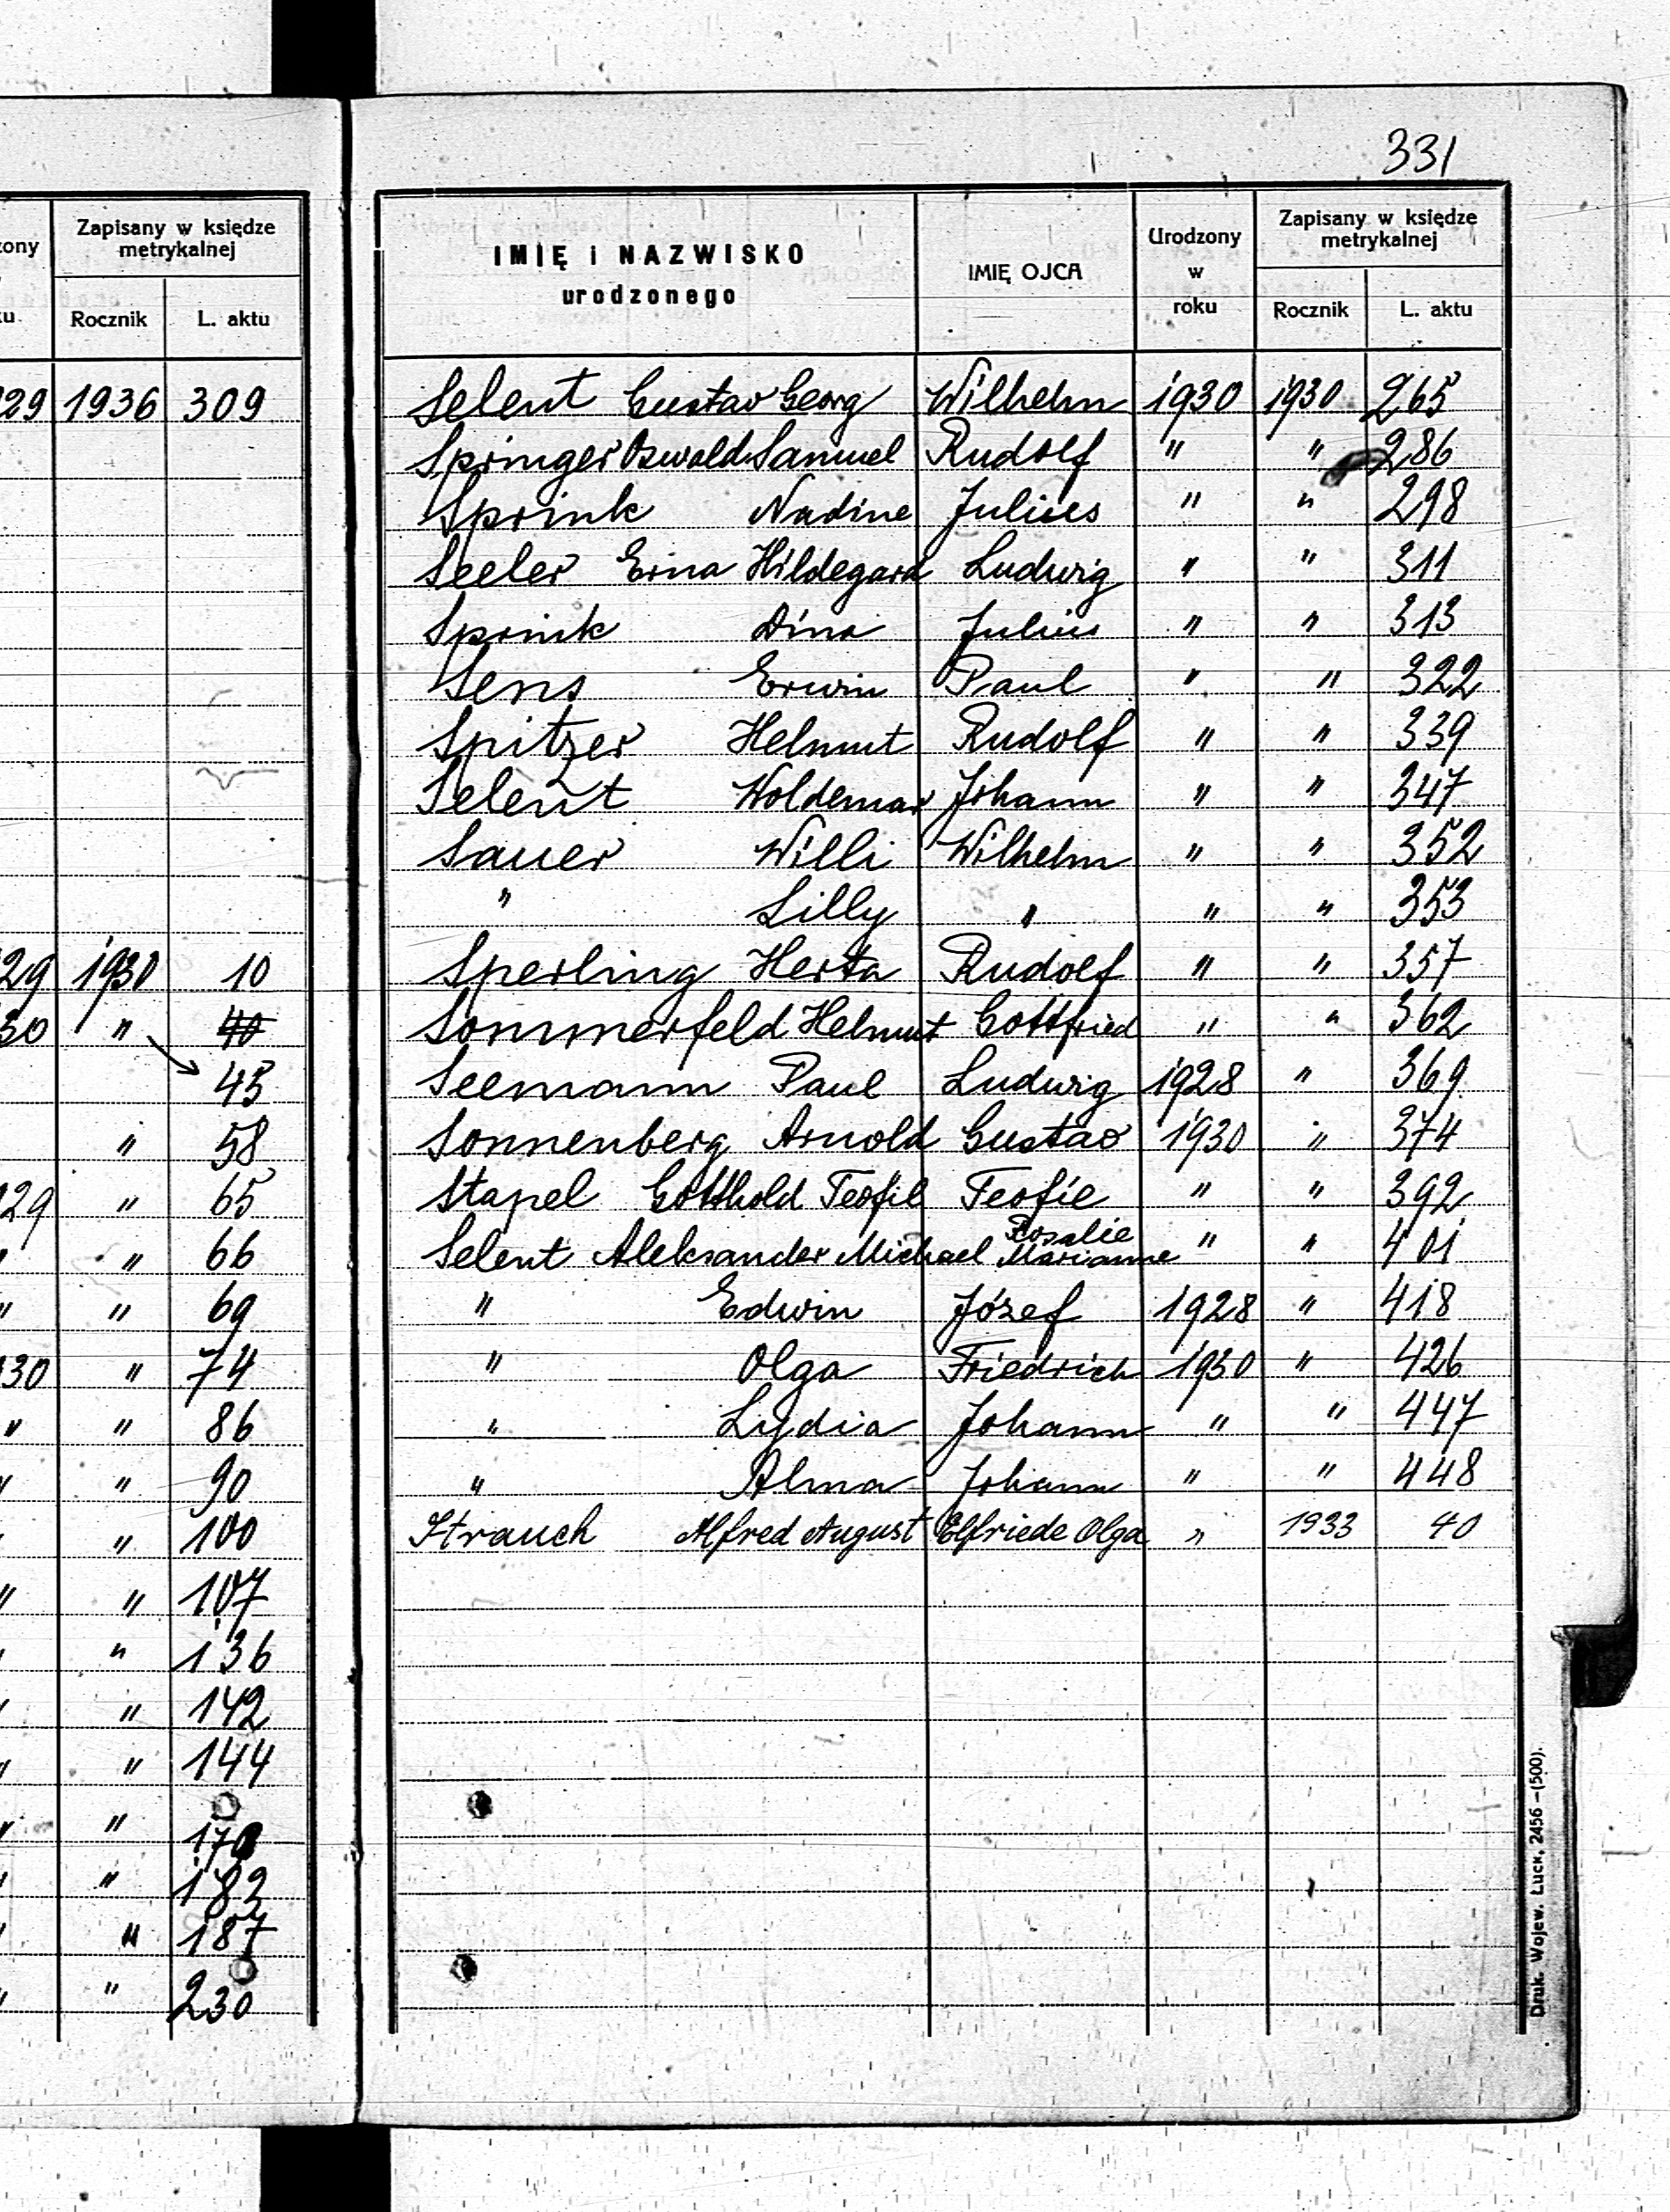 331
zony
Zapisany w księdze
metrykalnej
Rocznik L. aktu
29 1936 309
29 1930 10
30 " 40
45
" 58
29 " 65
" " 66
" " 69
30 " 74
" " 86
" " 90
" " 100
" " 107
" " 136
" " 142
" " 144
" "
" " 182
" " 187
" " 230
IMIĘ i NAZWISKO
urodzonego
IMIĘ OJCA
Urodzony
w
roku
Zapisany w księdze
metrykalnej
Rocznik L. aktu
Selent Gustav Georg Wilhelm 1930 1930 265
Springer Oswald Samuel Rudolf " " 286
Sprink Nadine Julius " " 298
Seeler Erna Hildegard Ludwig " " 311
Sprink Dina Julius " " 313
Sens Erwin Paul " " 322
Spitzer Helmut Rudolf " " 339
Selent Woldemar Johann " " 347
Sauer Willi Wilhelm " " 352
" Lilly " " " 353
Sperling Herta Rudolf " " 357
Sommerfeld Helmut Gottfried " " 362
Seemann Paul Ludwig 1928 " 369
Sonnenberg Arnold Gustav 1930 " 374
Stapel Gotthold Teofil Teofie " " 392
Selent Aleksander Michael Rosalie Marianne " " 401
" Edwin Józef 1928 " 418
" Olga Friedrich 1930 " 426
" Lydia Johann " " 447
" Alma Johann " " 448
Strauch Alfred August Elfriede Olga " 1933 40
Druk. Wojew. Łuck, 2456 –(500).